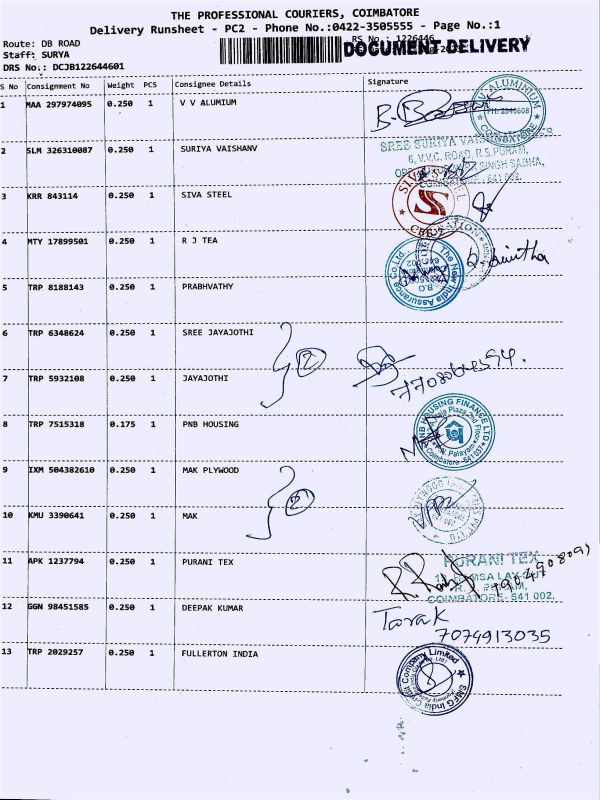 THE PROFESSIONAL COURIERS, COIMBATORE
Delivery Runsheet - PC2 - Phone No.:0422-3505555 - Page No.:1
Route: DB ROAD RS No.: 1226446
Staff: SURYA DOCUMENT DELIVERY
DRS No.: DCJB122644601
S No Consignment No Weight PCS Consignee Details Signature
1 MAA 297974095 0.250 1 V V ALUMIUM
V.V. ALUMINIUM
COIMBATORE
2 SLM 326310087 0.250 1 SURIYA VAISHANV
SREE SURIYA
6, V.V.C. ROAD, R.S PURAM,
SINGH SABHA,
3 KRR 843114 0.250 1 SIVA STEEL
SIVA STEEL
CBE-2
4 MTY 17899501 0.250 1 R J TEA
The New India Assurance Co Ltd.
5 TRP 8188143 0.250 1 PRABHVATHY
6 TRP 6348624 0.250 1 SREE JAYAJOTHI
2
7 TRP 5932108 0.250 1 JAYAJOTHI
8 TRP 7515318 0.175 1 PNB HOUSING
PNB HOUSING FINANCE LTD
Coimbatore - 641 037
9 IXM 504382610 0.250 1 MAK PLYWOOD
2
10 KMU 3390641 0.250 1 MAK
11 APK 1237794 0.250 1 PURANI TEX
PURANI TEX
COIMBATORE- 641 002.
12 GGN 98451585 0.250 1 DEEPAK KUMAR
Tarak
7074913035
13 TRP 2029257 0.250 1 FULLERTON INDIA
SMFG India Credit Company Limited